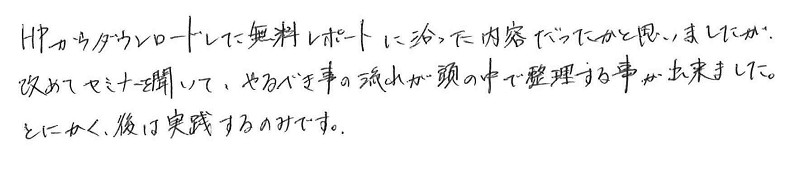 HPからダウンロードした無料レポートに沿った内容だったかと思いましたが、
改めてセミナーを聞いて、やるべき事の流れが頭の中で整理する事が出来ました。
とにかく、後は実践するのみです。